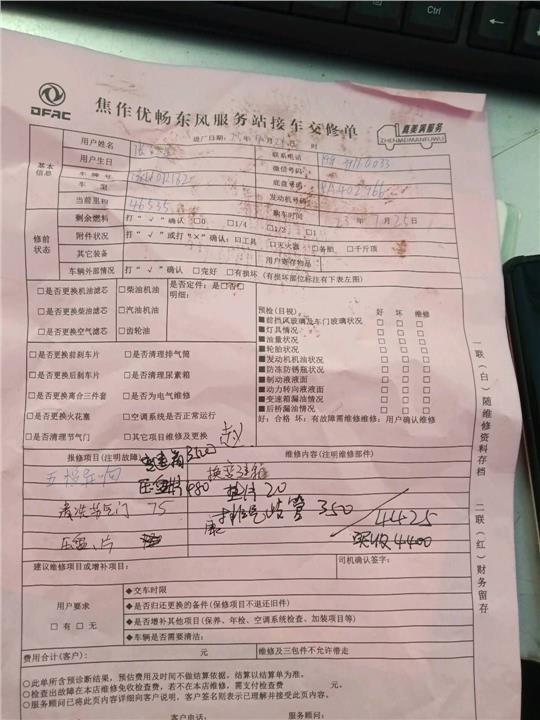 DFAC
焦作优畅东风服务站接车交修单
真美满服务
ZHENMEIMANFUWU
进厂日期: 年 月 日 时
基本信息
用户姓名 联系电话
用户生日 微信号码
车牌号 底盘号
车型 发动机号码
当前里程 46535 购车时间 13年7月25日
修前状态
剩余燃料 打“√”确认 □0 □1/4 □1/2 □1
附件状况 打“√”或打“×”确认: □工具 □灭火器 □备胎 □千斤顶
其它装备 用户寄存物品
车辆外部情况 打“√”确认 □完好 □有损坏 (有损坏部位标注有下表左图)
□是否更换机油滤芯 □柴油机油 是否定件: 是□否□
明细:
□是否更换柴油滤芯 □汽油机油
□是否更换空气滤芯 □齿轮油
□是否更换前刹车片 □是否清理排气筒
□是否更换后刹车片 □是否清理尿素箱
□是否更换离合三件套 □是否为电气维修
□是否更换火花塞 □空调系统是否正常运行
□是否清理节气门 □其它项目维修及更换
预检(目视) 好 坏 维修
■前挡风玻璃及车门玻璃状况 □ □ □
■灯具情况 □ □ □
■油量状况 □ □ □
■轮胎状况 □ □ □
■发动机机油状况 □ □ □
■防冻防锈瓶状况 □ □ □
■制动液液面 □ □ □
■动力转向液液面 □ □ □
■变速箱漏油情况 □ □ □
■后桥漏油情况 □ □ □
好: 合格 坏: 有故障需维修维修: 用户确认维修
报修项目(注明故障) 变速箱3500 维修内容(注明维修部件)
五档异响 换变速箱
压盘片480 垫片20
清洗节气门 75 排气歧管 350 4425
压盘、片 实收4400
建议维修项目或增补项目: 司机确认签字:
用户要求
□有 □无
◆交车时限
◆是否归还更换的备件(保修项目不退还旧件)
◆是否增补其他项目(保养、年检、空调系统检查、加装项目等)
◆车辆是否需要清洁:
费用合计(客户): 元 维修及三包件不允许带走
○此单所含预诊断结果，预估费用及时间不做结算依据，结算以结算单为准。
○检查出故障在本店维修免收检查费，若不在本店维修，需支付检查费 元。
○服务顾问已将此页内容详细向客户说明，客户签名则表示已理解并接受此页内容。
客户电话: 服务顾问:
一联(白)随维修资料存档
二联(红)财务留存
Ctrl